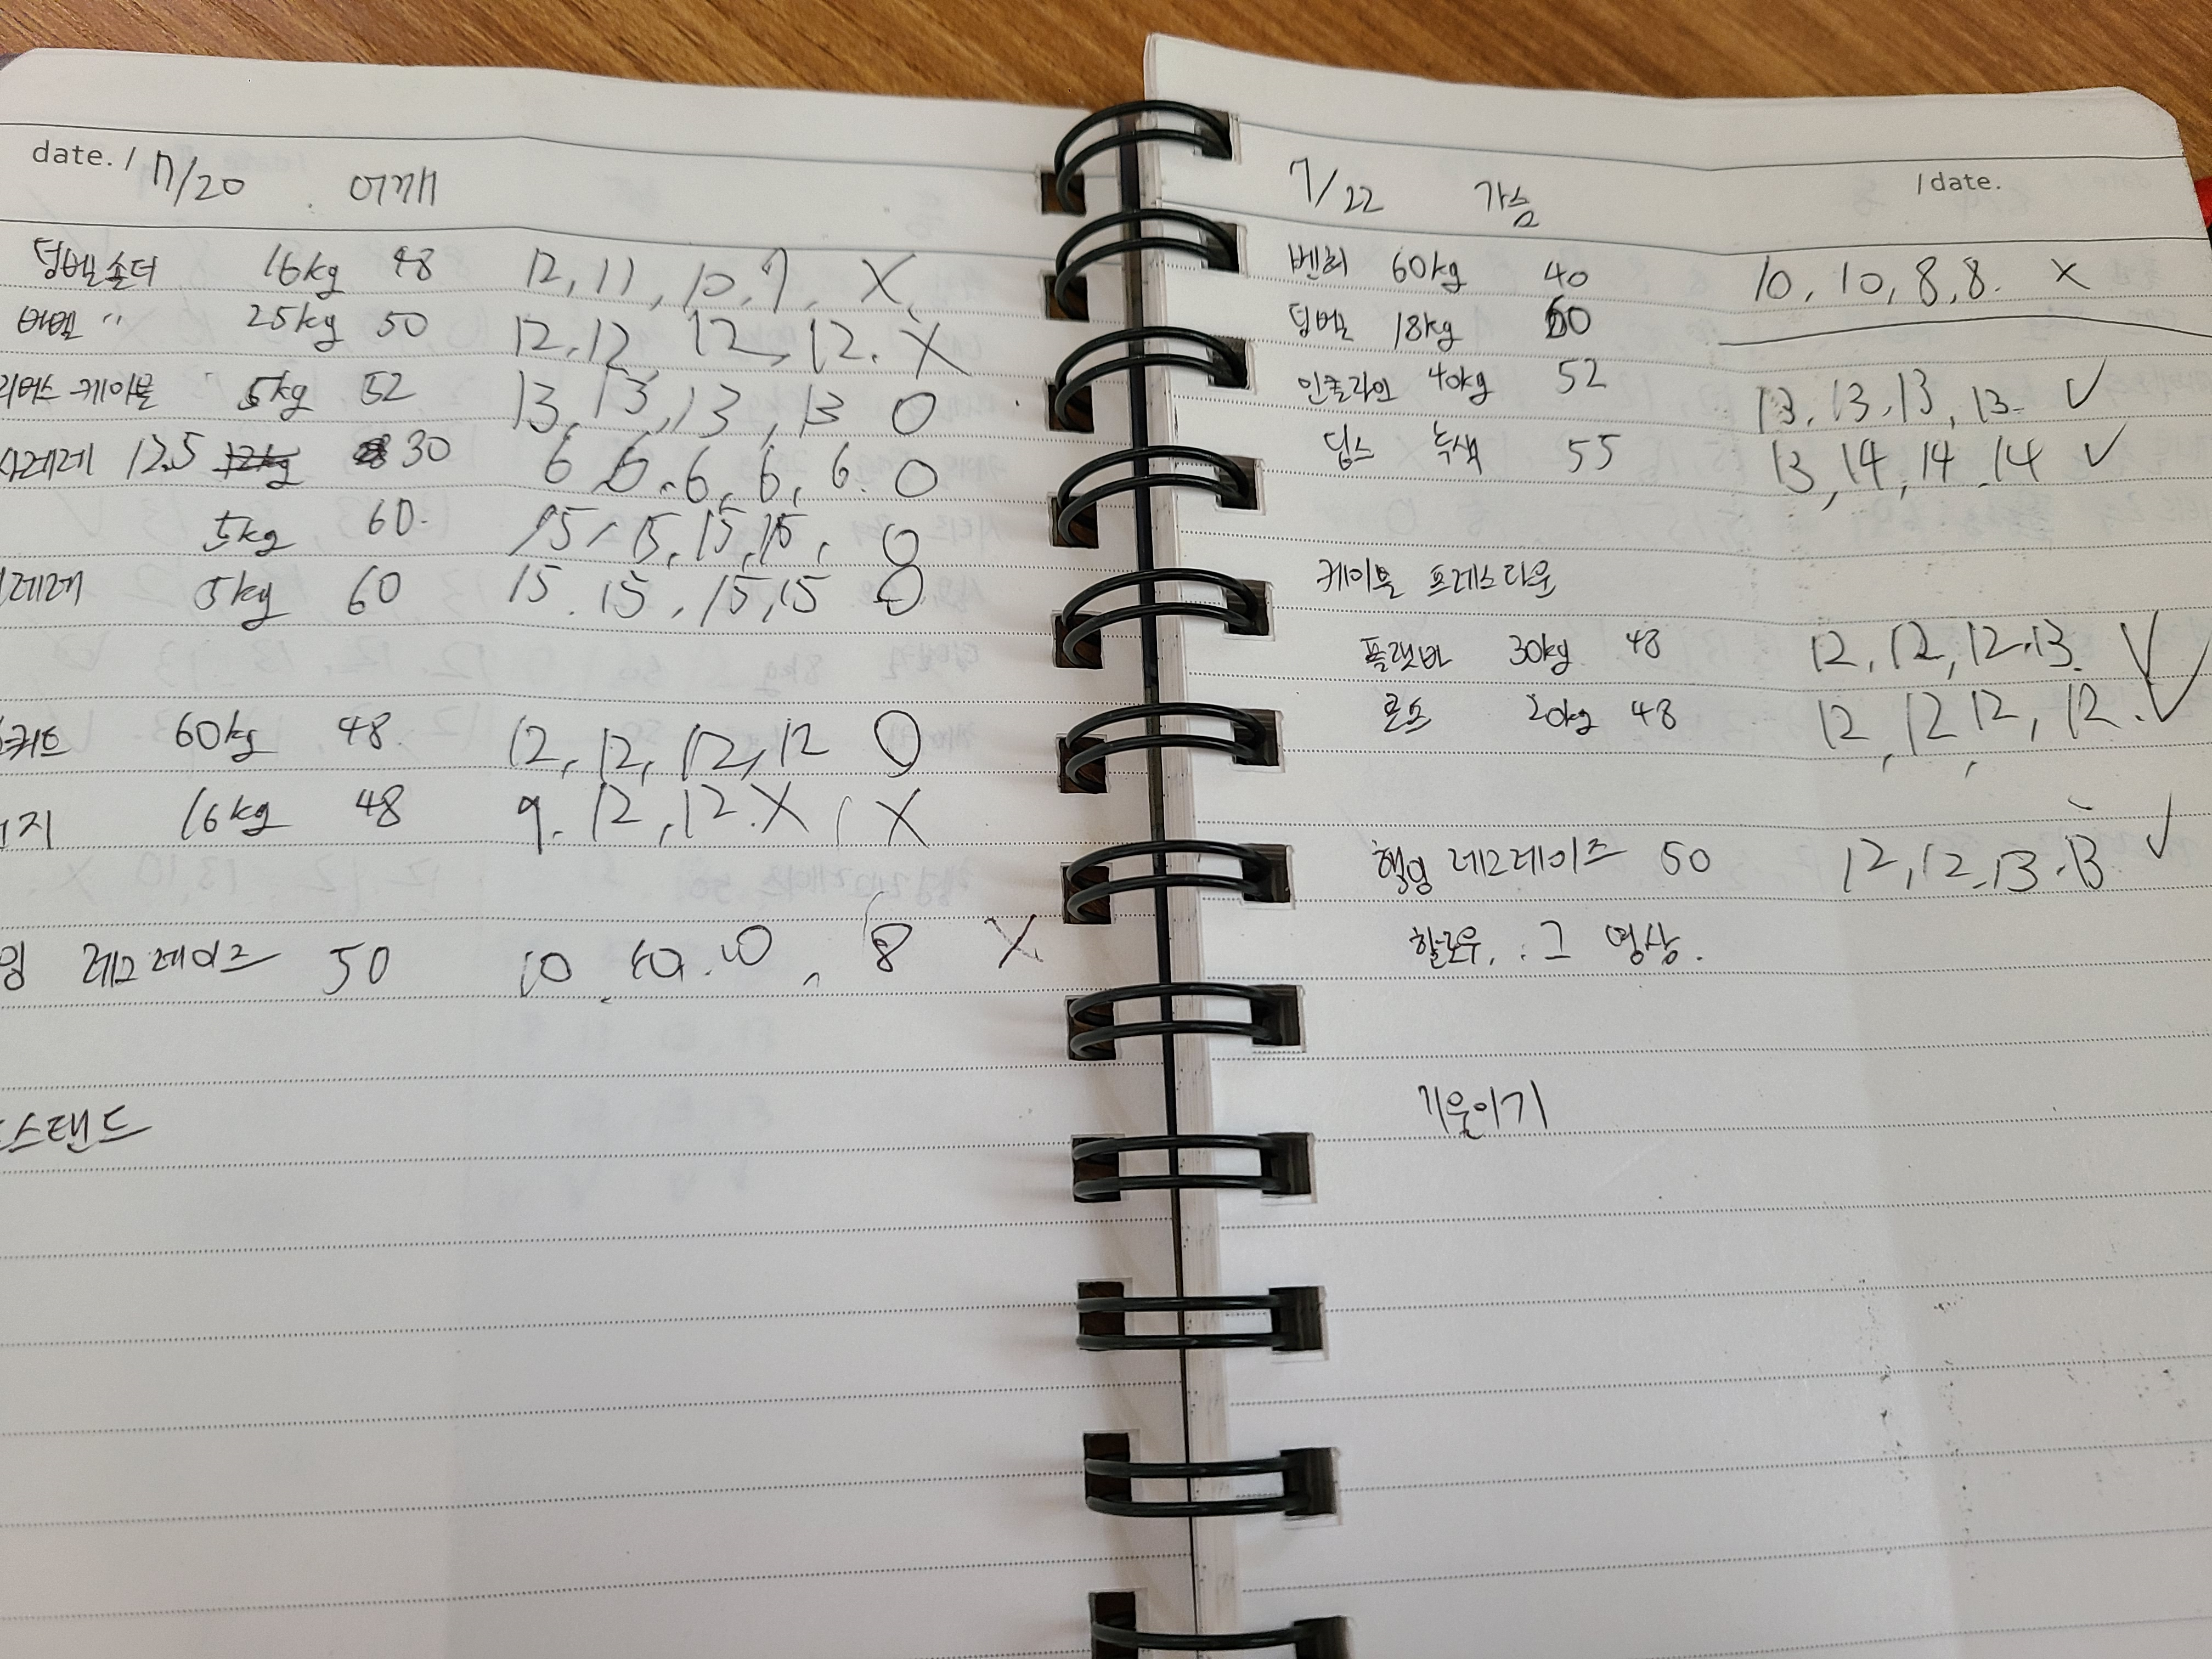 date. / 7/20 어깨
덤벨숄더 16kg 48 12, 11, 10, 7. X
바벨 〃 25kg 50 12, 12, 12, 12. X
리버스 케이블 5kg 52 13, 13, 13, 13 O
사레레 12.5 30 6 6. 6. 6, 6. O
5kg 60. 15, 15, 15, 15, O
레레 5kg 60 15. 15, 15, 15 O
쿼트 60kg 48 12, 12, 12, 12 O
지 16kg 48 9. 12, 12. X, X
잉 레그레이즈 50 10 10. 10, 8 X
스탠드
7/22 가슴 / date.
벤치 60kg 40 10, 10, 8, 8. X
덤벨 18kg 60
인클라인 40kg 52 13, 13, 13, 13. ✓
딥스 녹색 55 13, 14, 14, 14 ✓
케이블 프레스다운
플랫바 30kg 48 12, 12, 12, 13. ✓
로프 20kg 48 12, 12, 12, 12. ✓
행잉 레그레이즈 50 12, 12, 13, 13 ✓
할로우, 그 영상.
기울이기